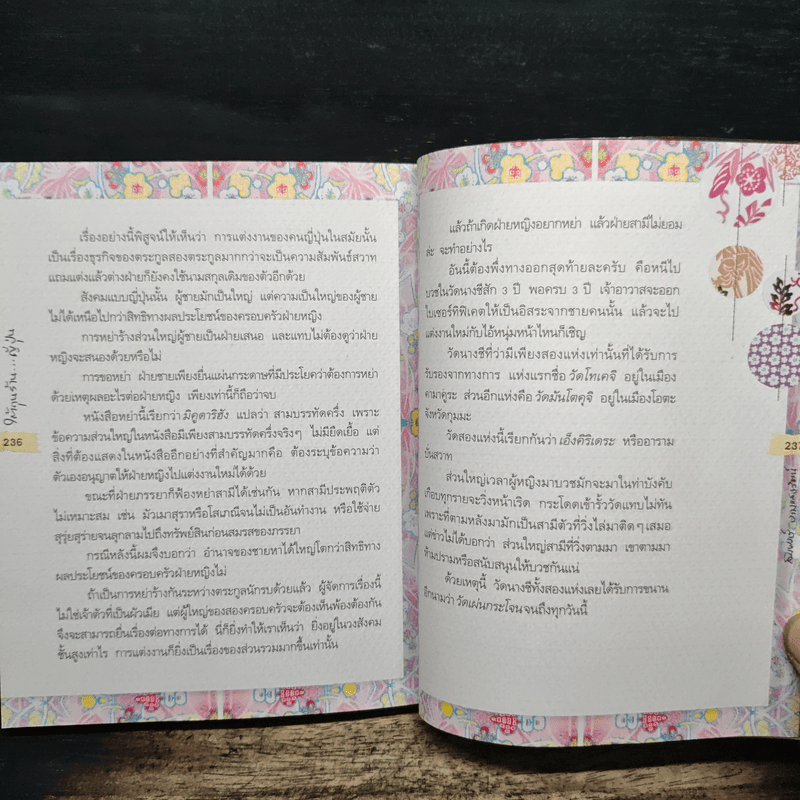 เรื่องอย่างนี้พิสูจน์ให้เห็นว่า การแต่งงานของคนญี่ปุ่นในสมัยนั้น
เป็นเรื่องธุรกิจของตระกูลสองตระกูลมากกว่าจะเป็นความสัมพันธ์สวาท
แถมแต่งแล้วต่างฝ่ายก็ยังคงใช้นามสกุลเดิมของตัวอีกด้วย
สังคมแบบญี่ปุ่นนั้น ผู้ชายมักเป็นใหญ่ แต่ความเป็นใหญ่ของผู้ชาย
ไม่ได้เหนือไปกว่าสิทธิทางผลประโยชน์ของครอบครัวฝ่ายหญิง
การหย่าร้างส่วนใหญ่ผู้ชายเป็นฝ่ายเสนอ และแทบไม่ต้องดูว่าฝ่าย
หญิงจะสนองด้วยหรือไม่
การขอหย่า ฝ่ายชายเพียงยื่นแผ่นกระดาษที่มีประโยคว่าต้องการหย่า
ด้วยเหตุผลอะไรต่อฝ่ายหญิง เพียงเท่านี้ก็ถือว่าจบ
หนังสือหย่านี้เรียกว่า มิคูดาริฮัง แปลว่า สามบรรทัดครึ่ง เพราะ
ข้อความส่วนใหญ่ในหนังสือมีเพียงสามบรรทัดครึ่งจริงๆ ไม่มียืดเยื้อ แต่
สิ่งที่ต้องแสดงในหนังสืออีกอย่างที่สำคัญมากคือ ต้องระบุข้อความว่า
ตัวเองอนุญาตให้ฝ่ายหญิงไปแต่งงานใหม่ได้ด้วย
ขณะที่ฝ่ายภรรยาก็ฟ้องหย่าสามีได้เช่นกัน หากสามีประพฤติตัว
ไม่เหมาะสม เช่น มัวเมาสุราหรือโสเภณีจนไม่เป็นอันทำงาน หรือใช้จ่าย
สุรุ่ยสุร่ายจนลุกลามไปถึงทรัพย์สินก่อนสมรสของภรรยา
กรณีหลังนี้ผมจึงบอกว่า อำนาจของชายหาได้ใหญ่โตกว่าสิทธิทาง
ผลประโยชน์ของครอบครัวฝ่ายหญิงไม่
ถ้าเป็นการหย่าร้างกันระหว่างตระกูลนักรบด้วยแล้ว ผู้จัดการเรื่องนี้
ไม่ใช่เจ้าตัวที่เป็นผัวเมีย แต่ผู้ใหญ่ของสองครอบครัวจะต้องเห็นพ้องต้องกัน
จึงจะสามารถยื่นเรื่องต่อทางการได้ นี่ก็ยิ่งทำให้เราเห็นว่า ยิ่งอยู่ในวงสังคม
ชั้นสูงเท่าไร การแต่งงานก็ยิ่งเป็นเรื่องของส่วนรวมมากขึ้นเท่านั้น
236
แล้วถ้าเกิดฝ่ายหญิงอยากหย่า แล้วฝ่ายสามีไม่ยอม
ล่ะ จะทำอย่างไร
อันนี้ต้องพึ่งทางออกสุดท้ายละครับ คือหนีไป
บวชในวัดนางชีสัก 3 ปี พอครบ 3 ปี เจ้าอาวาสจะออก
ใบเซอร์ทิฟิเคตให้เป็นอิสระจากชายคนนั้น แล้วจะไป
แต่งงานใหม่กับไอ้หนุ่มหน้าไหนก็เชิญ
วัดนางชีที่ว่ามีเพียงสองแห่งเท่านั้นที่ได้รับการ
รับรองจากทางการ แห่งแรกชื่อ วัดโทเคจิ อยู่ในเมือง
คามาคุระ ส่วนอีกแห่งคือ วัดมันโตคุจิ อยู่ในเมืองโอตะ
จังหวัดกุมมะ
วัดสองแห่งนี้เรียกกันว่า เอ็งคิริเดระ หรืออาราม
บั่นสวาท
ส่วนใหญ่เวลาผู้หญิงมาบวชมักจะมาในท่าบังคับ
เกือบทุกรายจะวิ่งหน้าเริด กระโดดเข้ารั้ววัดแทบไม่ทัน
เพราะที่ตามหลังมามักเป็นสามีตัวที่วิ่งไล่มาติดๆ เสมอ
แต่ข่าวไม่ได้บอกว่า ส่วนใหญ่สามีที่วิ่งตามมา เขาตามมา
ห้ามปรามหรือสนับสนุนให้บวชกันแน่
ด้วยเหตุนี้ วัดนางชีทั้งสองแห่งเลยได้รับการขนาน
อีกนามว่า วัดเผ่นกระโจน จนถึงทุกวันนี้
237